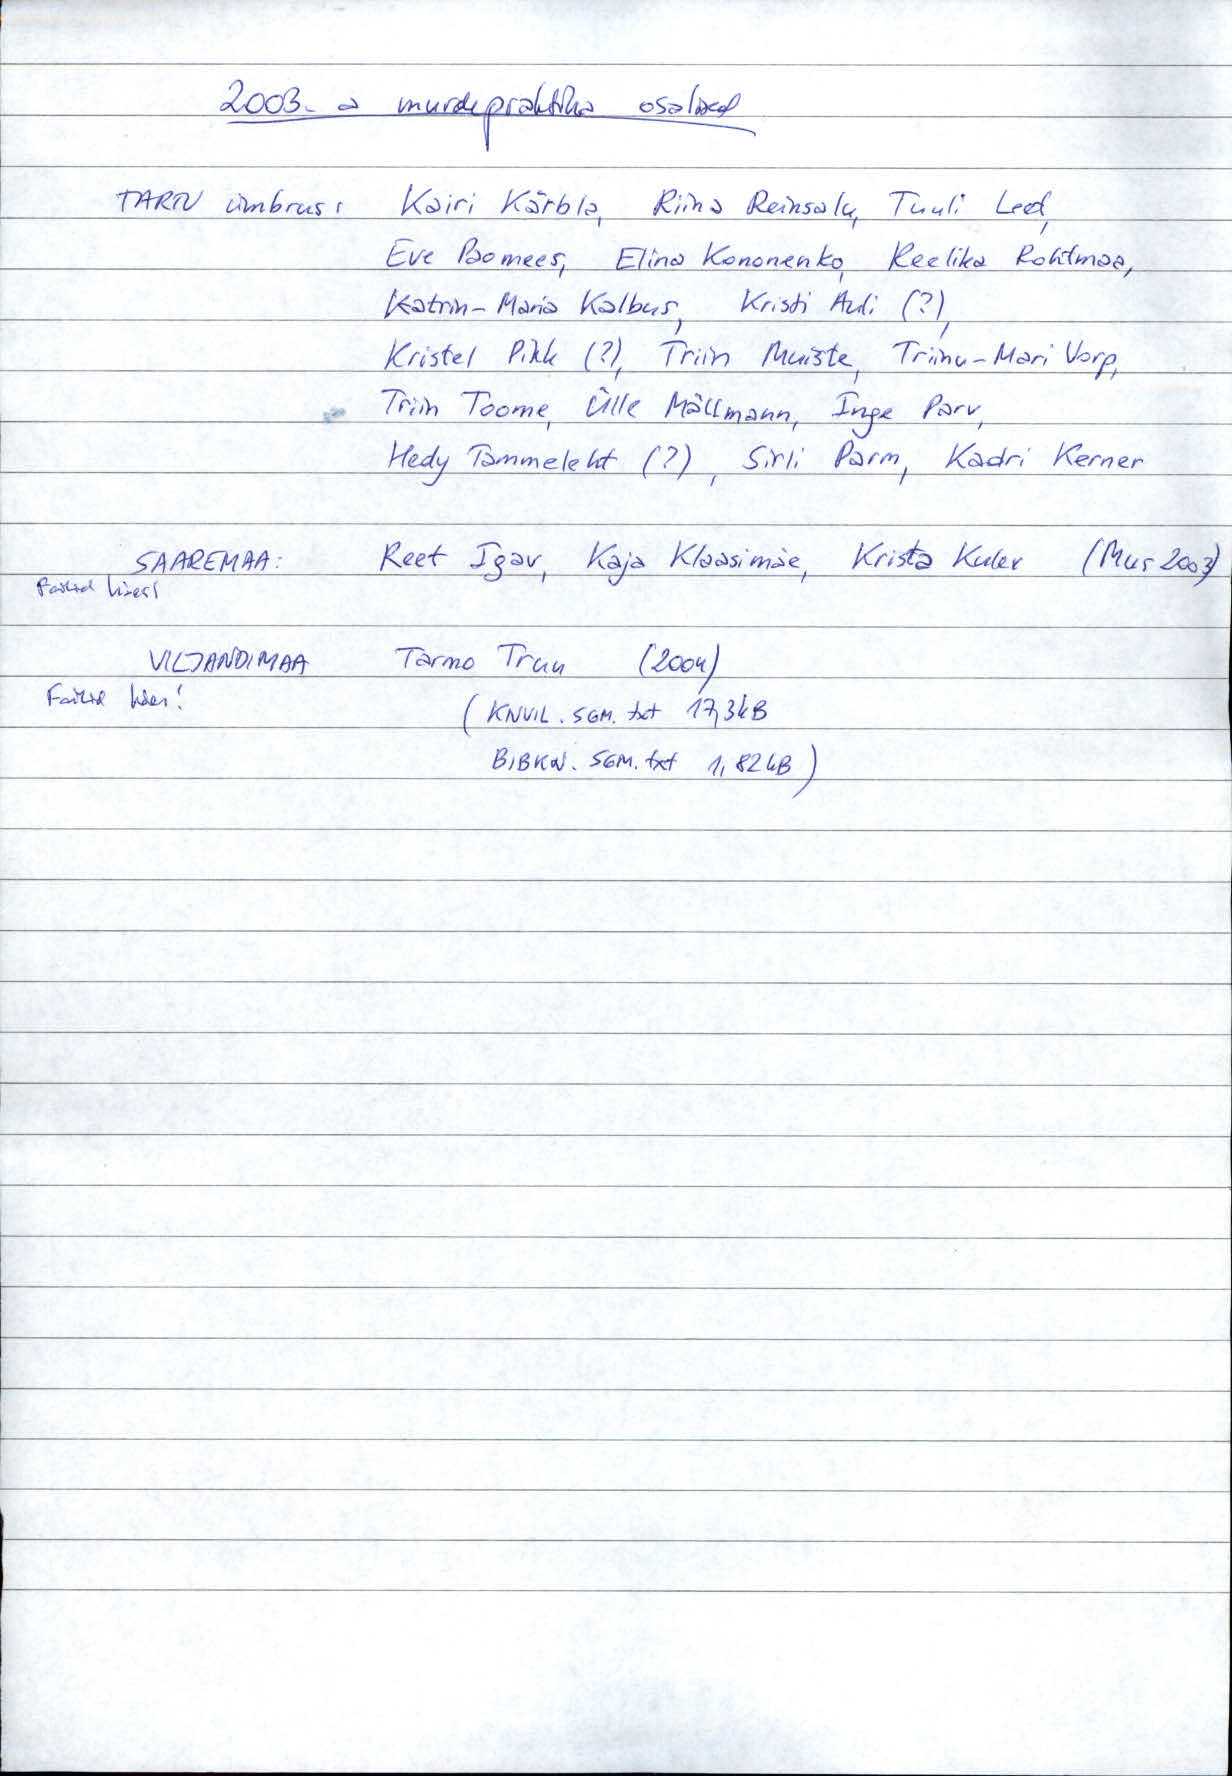 2003. a murdepraktika osalised
TARTU ümbrus: Kairi Kärbla, Riina Reinsalu, Tuuli Leed,
Eve Poomees, Elina Kononenko, Reelika Rohtmaa,
Katrin-Maria Kalbus, Kristi Auli (?),
Kristel Pikk (?), Triin Muiste, Triinu-Mari Vorp,
Triin Toome, Ülle Mällmann, Inge Parv,
Hedy Tammeleht (?), Sirli Parm, Kadri Kerner
SAAREMAA: Reet Igav, Kaja Klaasimäe, Krista Kulex (Mus 2003)
Failid
VILJANDIMAA Tarmo Truu (2004)
Failid
(KNVIL.SGM.txt 17,3kB
BIBKN.SGM.txt 1,82kB)